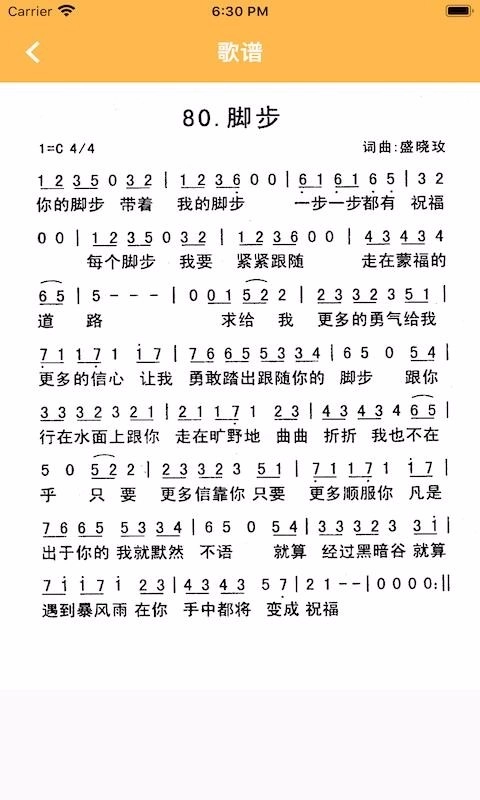 Carrier 6:30 PM
歌谱
80.脚步
1=C 4/4 词曲:盛晓玫
1 2 3 5 0 3 2 | 1 2 3 6 0 0 | 6 1 6 1 6 5 | 3 2
你的脚步 带着 我的脚步 一步一步都有 祝福
0 0 | 1 2 3 5 0 3 2 | 1 2 3 6 0 0 | 4 3 4 3 4
每个脚步 我要 紧紧跟随 走在蒙福的
6 5 | 5 - - - | 0 0 1 5 2 2 | 2 3 3 2 3 5 1 |
道 路 求给 我 更多的勇气给我
7 1 1 7 1 1 7 | 7 6 6 5 5 3 3 4 | 6 5 0 5 4 |
更多的信心 让我 勇敢踏出跟随你的 脚步 跟你
3 3 3 2 3 2 1 | 2 1 1 7 1 2 3 | 4 3 4 3 4 6 5 |
行在水面上跟你 走在旷野地 曲曲 折折 我也不在
5 0 5 2 2 | 2 3 3 2 3 5 1 | 7 1 1 7 1 1 7 |
乎 只 要 更多信靠你 只要 更多顺服你 凡是
7 6 6 5 5 3 3 4 | 6 5 0 5 4 | 3 3 3 2 3 3 i |
出于你的 我就默然 不语 就算 经过黑暗谷 就算
7 i i 7 i 2 3 | 4 3 4 3 5 7 | 2 1 - - | 0 0 0 0 :||
遇到暴风雨 在你 手中都将 变成 祝福